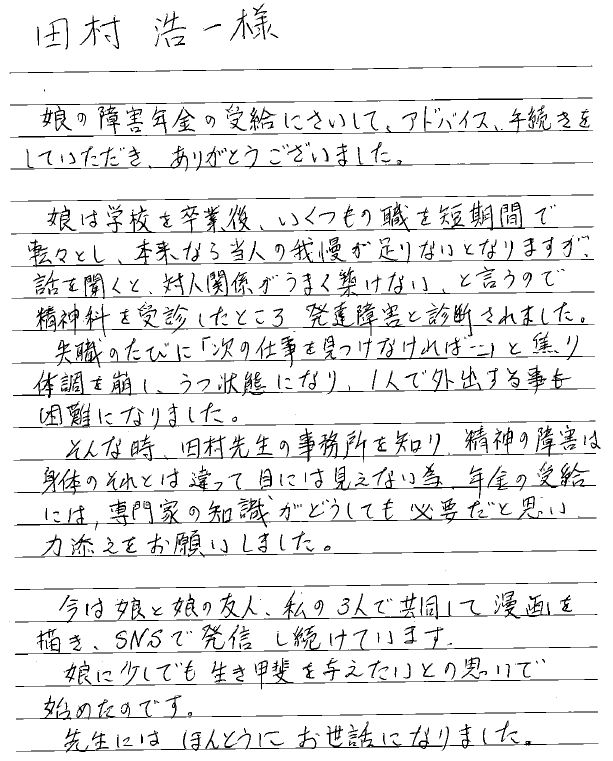 田村 浩一様
娘の障害年金の受給にさいして、アドバイス、手続きを
していただき、ありがとうございました。
娘は学校を卒業後、いくつもの職を短期間で
転々とし、本来なら当人の我慢が足りないとなりますが、
話を聞くと、対人関係がうまく築けない、と言うので
精神科を受診したところ 発達障害と診断されました。
失職のたびに「次の仕事を見つけなければ…」と焦り
体調を崩し、うつ状態になり、1人で外出する事も
困難になりました。
そんな時、田村先生の事務所を知り、精神の障害は
身体のそれとは違って目には見えない為、年金の受給
には、専門家の知識がどうしても必要だと思い
力添えをお願いしました。
今は娘と娘の友人、私の3人で共同して漫画を
描き、SNSで発信し続けています。
娘に少しでも生き甲斐を与えたいとの思いで
始めたのです。
先生には ほんとうに お世話になりました。